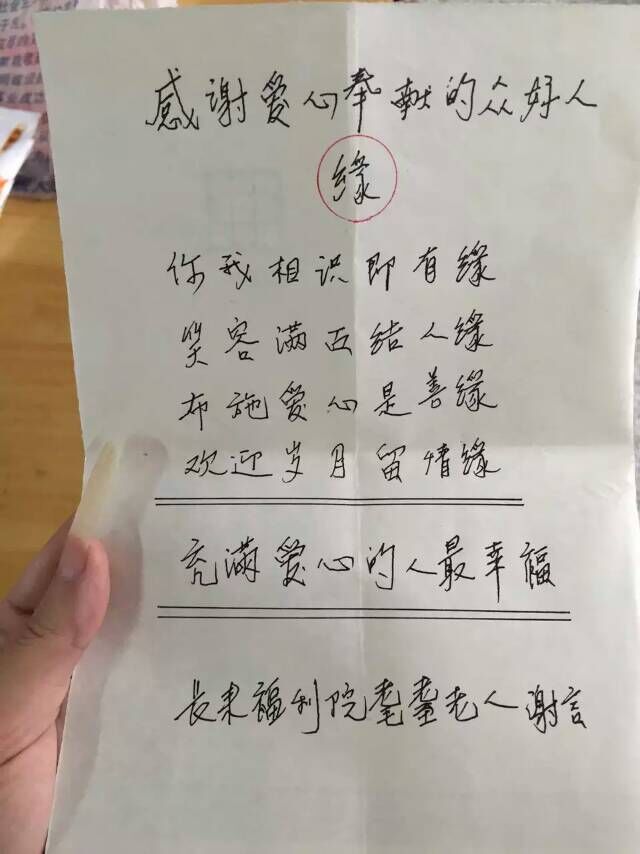 感谢爱心奉献的众好人
缘
你我相识即有缘
笑容满面结人缘
布施爱心是善缘
欢迎岁月留情缘
充满爱心的人最幸福
長来福利院耄耋老人谢言